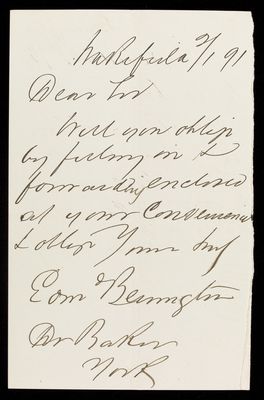 Wakefield 2/1 91
Dear Sir
Will you oblige
by filling in &
forwarding enclosed
at your Convenience
& oblige Yours truly
Edwd Benington
Dr Baker
York